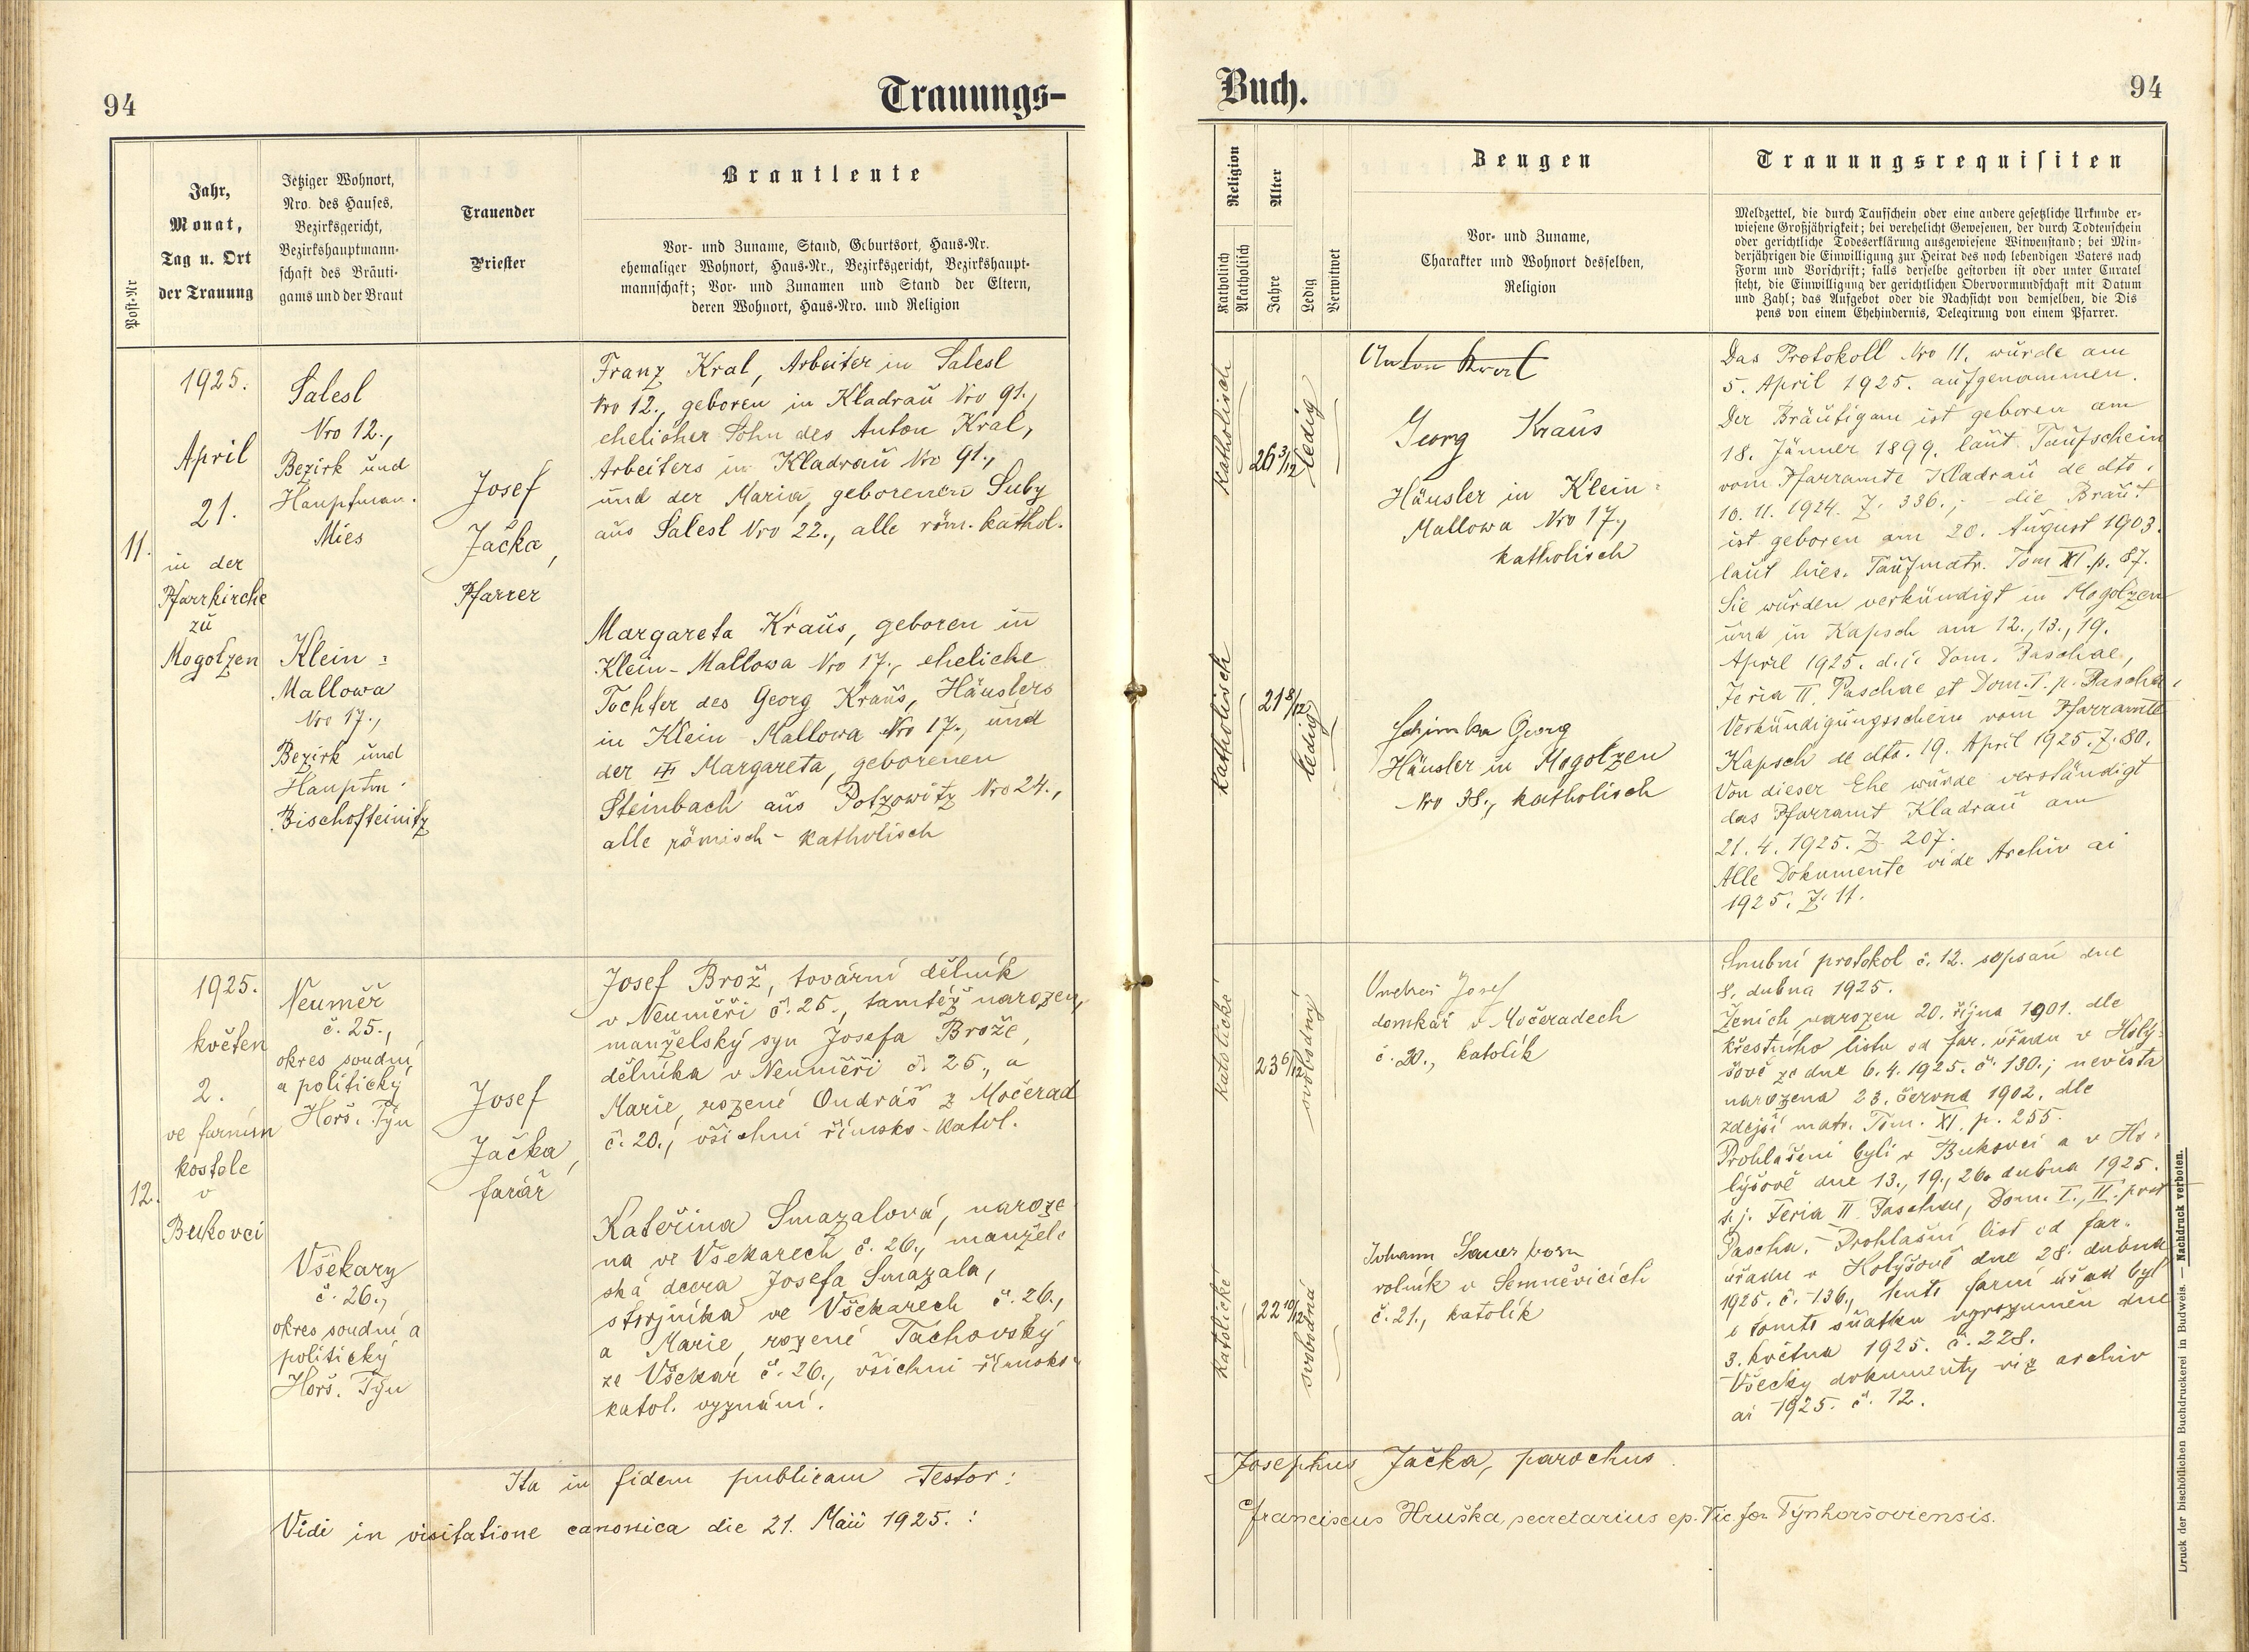 94
Trauungs-
Post-Nr
Jahr,
Monat,
Tag u. Ort
der Trauung
Jetziger Wohnort,
Nro. des Hauses,
Bezirksgericht,
Bezirkshauptmann-
schaft des Bräuti-
gams und der Braut
Trauender
Priester
Brautleute
Vor- und Zuname, Stand, Geburtsort, Haus-Nr.
ehemaliger Wohnort, Haus-Nr., Bezirksgericht, Bezirkshaupt-
mannschaft; Vor- und Zunamen und Stand der Eltern,
deren Wohnort, Haus-Nro. und Religion
11.
1925.
April
21.
in der
Pfarrkirche
zu
Mogolzen
Salesl
Nro 12.,
Bezirk und
Hauptman.
Mies
Klein =
Mallowa
Nro 17.,
Bezirk und
Hauptm.
Bischofteinitz
Josef
Jačka,
Pfarrer
Franz Kral, Arbeiter in Salesl
Nro 12., geboren in Kladrau Nro 91.,
ehelicher Sohn des Anton Kral,
Arbeiters in Kladrau Nro 91.,
und der Maria, geborenen Suby
aus Salesl Nro 22., alle röm. kathol.
Margareta Kraus, geboren in
Klein-Mallowa Nro 17., eheliche
Tochter des Georg Kraus, Häuslers
in Klein-Mallowa Nro 17., und
der Margareta, geborenen
Steinbach aus Potzowitz Nro 24.,
alle römisch-katholisch
12.
1925.
květen
2.
ve farním
kostele
v
Bukovci
Neuměř
č. 25.,
okres soudní
a politický
Horš. Týn
Všekary
č. 26.,
okres soudní a
politický
Horš. Týn
Josef
Jačka,
farář
Josef Brož, tovární dělník
v Neuměři č. 25., tamtéž narozen,
manželský syn Josefa Brože,
dělníka v Neuměři č. 25., a
Marie, rozené Ondráš z Močerad
č. 20., všichni římsko-katol.
Kateřina Smazalová, naroze-
na ve Všekarech č. 26., manžel-
ská dcera Josefa Smazala,
strojníka ve Všekarech č. 26.,
a Marie, rozené Tachovský
ze Všekar č. 26., všichni římsko-
katol. vyznání.
Ita in fidem publicam testor:
Vidi in visitatione canonica die 21. Maii 1925. :
Buch.
94
Religion
Katholisch
Akatholisch
Alter
Jahre
Ledig
Verwitwet
Zeugen
Vor- und Zuname,
Charakter und Wohnort desselben,
Religion
Trauungsrequisiten
Meldzettel, die durch Taufschein oder eine andere gesetzliche Urkunde er-
wiesene Großjährigkeit; bei verehelicht Gewesenen, der durch Todtenschein
oder gerichtliche Todeserklärung ausgewiesene Witwenstand; bei Min-
derjährigen die Einwilligung zur Heirat des noch lebendigen Vaters nach
Form und Vorschrift; falls derselbe gestorben ist oder unter Curatel
steht, die Einwilligung der gerichtlichen Obervormundschaft mit Datum
und Zahl; das Aufgebot oder die Nachsicht von demselben, die Dis
pens von einem Ehehindernis, Delegirung von einem Pfarrer.
katholisch
26 3/12
ledig
katholisch
21 8/12
ledig
Anton Kral
Georg Kraus
Häusler in Klein=
Mallowa Nro 17.,
katholisch
Schimka Georg
Häusler in Mogolzen
Nro 38., katholisch
Das Protokoll Nro 11. wurde am
5. April 1925. aufgenommen.
Der Bräutigam ist geboren am
18. Jänner 1899. laut Taufschein
vom Pfarramte Kladrau de dto.
10. 11. 1924. Z. 336.; die Braut
ist geboren am 20. August 1903.
laut hies. Taufmatr. Tom XI. p. 87.
Sie wurden verkündigt in Mogolzen
und in Kapsch am 12., 13., 19.
April 1925. d. i. Dom. Paschae,
Feria II. Paschae et Dom. I. p. Pascha.
Verkündigungsschein vom Pfarramte
Kapsch de dto. 19. April 1925. Z. 80.
Von dieser Ehe wurde verständigt
das Pfarramt Kladrau am
21. 4. 1925. Z. 207.
Alle Dokumente vide Archiv ai
1925. Z. 11.
katolické
23 6/12
svobodný
katolické
22 10/12
svobodná
Josef
domkář v Močeradech
č. 20., katolík
Johann
rolník v Semněvicích
č. 21., katolík
Snubní protokol č. 12. sepsán dne
8. dubna 1925.
Ženich narozen 20. října 1901. dle
křestního listu od far. úřadu v Holý-
šově ze dne 6. 4. 1925. č. 130.; nevěsta
narozena 23. června 1902. dle
zdejší matr. Tom. XI. p. 255.
Prohlášeni byli v Bukovci a v Ho-
lýšově dne 13., 19., 26. dubna 1925.
t. j. Feria II. Paschae, Dom. I., II. post
Pascha. Prohlašní list od far.
úřadu v Holýšově dne 28. dubna
1925. č. 136., tento farní úřad byl
o tomto sňatku vyrozuměn dne
3. května 1925. č. 228.
Všecky dokumenty viz archiv
ai 1925. č. 12.
Josephus Jačka, parochus.
Franciscus Hruška, secretarius ep. Vic. for. Týnhoršoviensis.
Druck der bischöflichen Buchdruckerei in Budweis. — Nachdruck verboten.